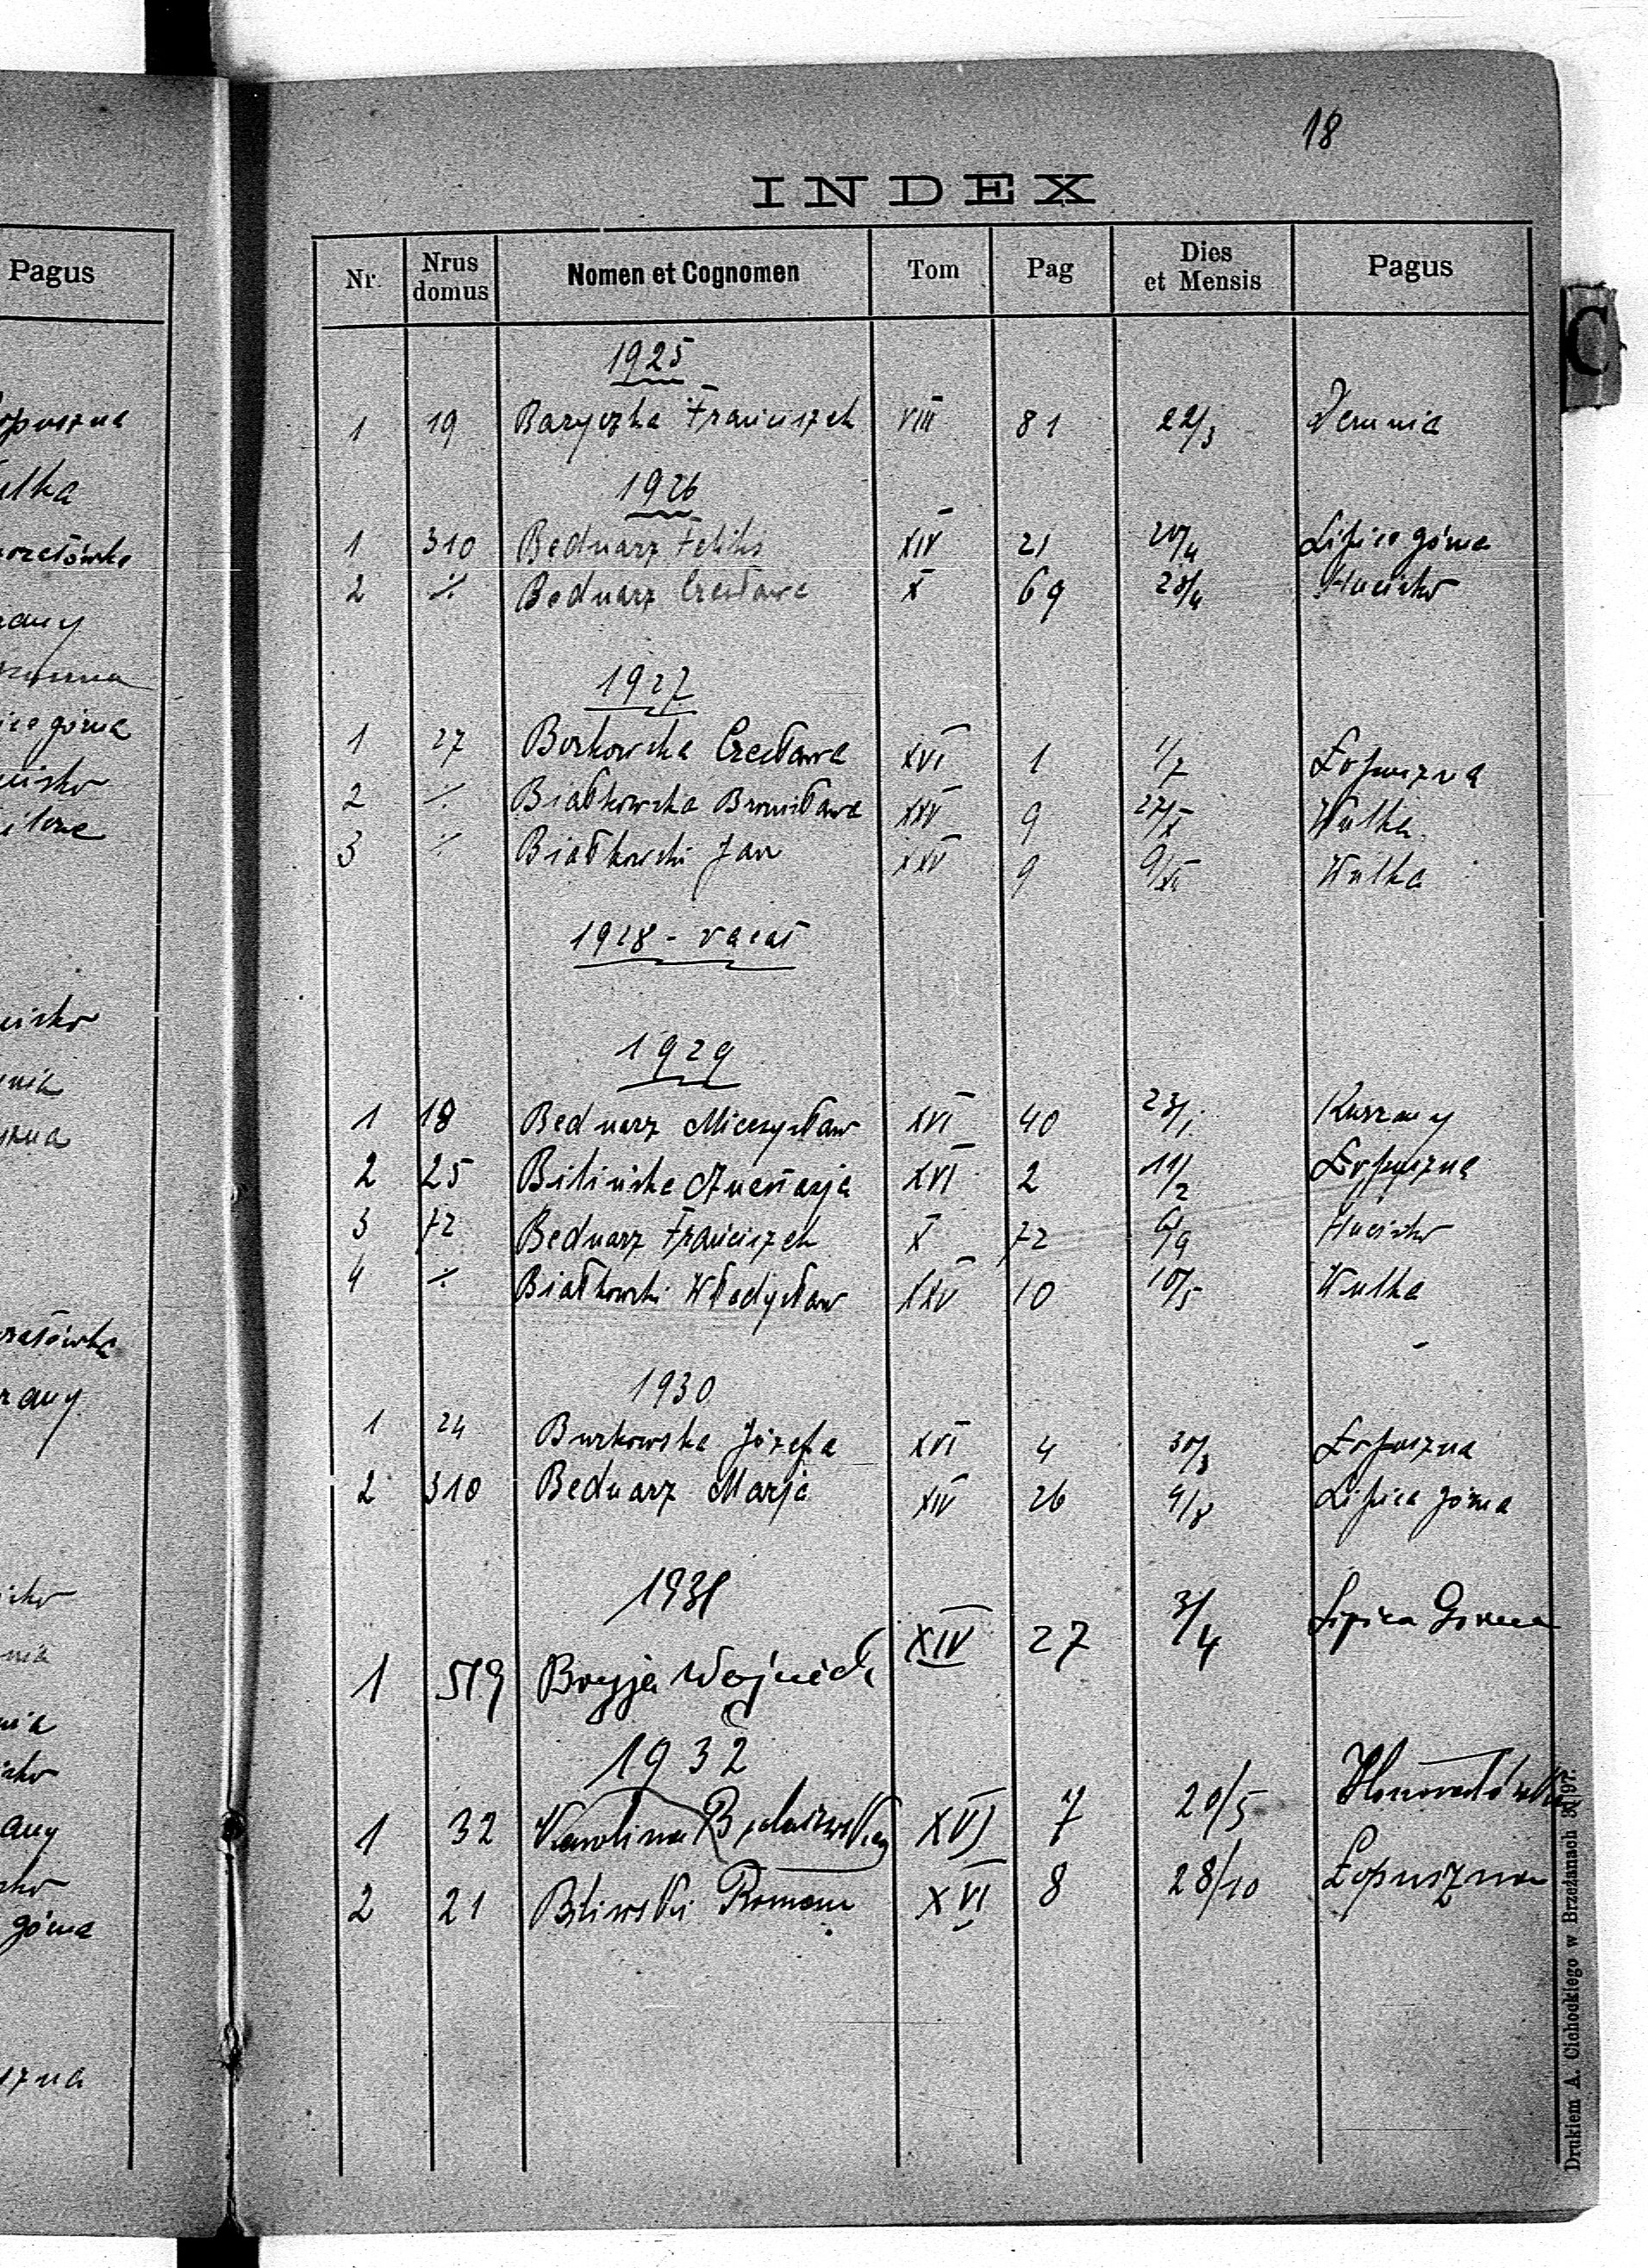 Pagus
opuszna
ulka
górna
18
INDEX
Nr. Nrus domus Nomen et Cognomen Tom Pag Dies et Mensis Pagus
1925
1 19 Baryczka Franciszek VIII 81 22/3 Demnia
1926
1 310 Bednarz Feliks XIV 21 20/4 Lipica górna
2 ⁒ Bednarz Czesława X 69 28/4 Hucisko
1927
1 27 Borkowska Czesława XVI 1 1/7 Łopuszna
2 ⁒ Białkowska Bronisława XXV 9 27/X Wulka
3 ⁒ Białkowski Jan XXV 9 9/XII Wulka
1928 - vacat
1929
1 18 Bednarz Mieczysław XVI 40 23/1 Kurzany
2 25 Bilińska Anastazja XVI 2 11/2 Łopuszna
3 72 Bednarz Franciszek X 72 6/9 Hucisko
4 ⁒ Białkowski Władysław XXV 10 10/5 Wulka
1930
1 24 Burkowska Józefa XVI 4 30/3 Łopuszna
2 310 Bednarz Marja XIV 26 4/8 Lipica górna
1931
1 519 Bryja Wojciech XIV 27 3/4 Lipica Górna
1932
1 32 Karolina XVI 7 20/5
2 21 Biliwski Roman XVI 8 28/10 Łopuszna
C
Drukiem A. Cichockiego w Brzeżanach